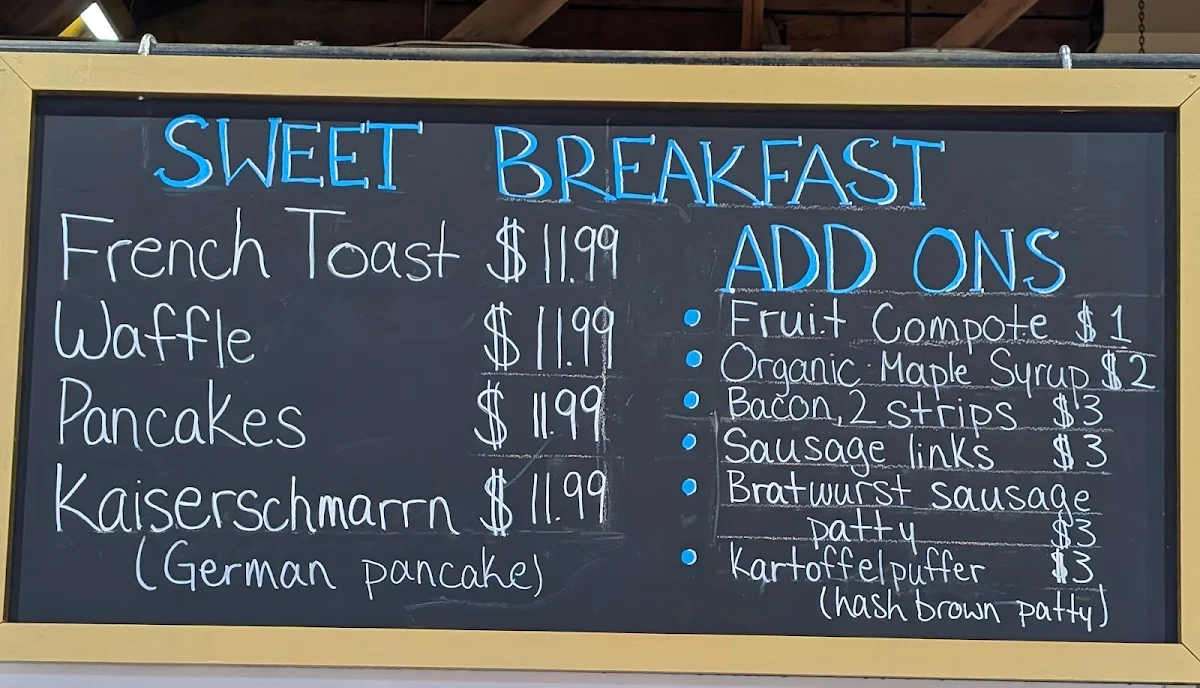 SWEET BREAKFAST
French Toast $11.99
Waffle $11.99
Pancakes $11.99
Kaiserschmarrn $11.99
(German pancake)
ADD ONS
• Fruit Compote $1
• Organic Maple Syrup $2
• Bacon, 2 strips $3
• Sausage links $3
• Bratwurst sausage
patty $3
• Kartoffelpuffer $3
(hash brown patty)